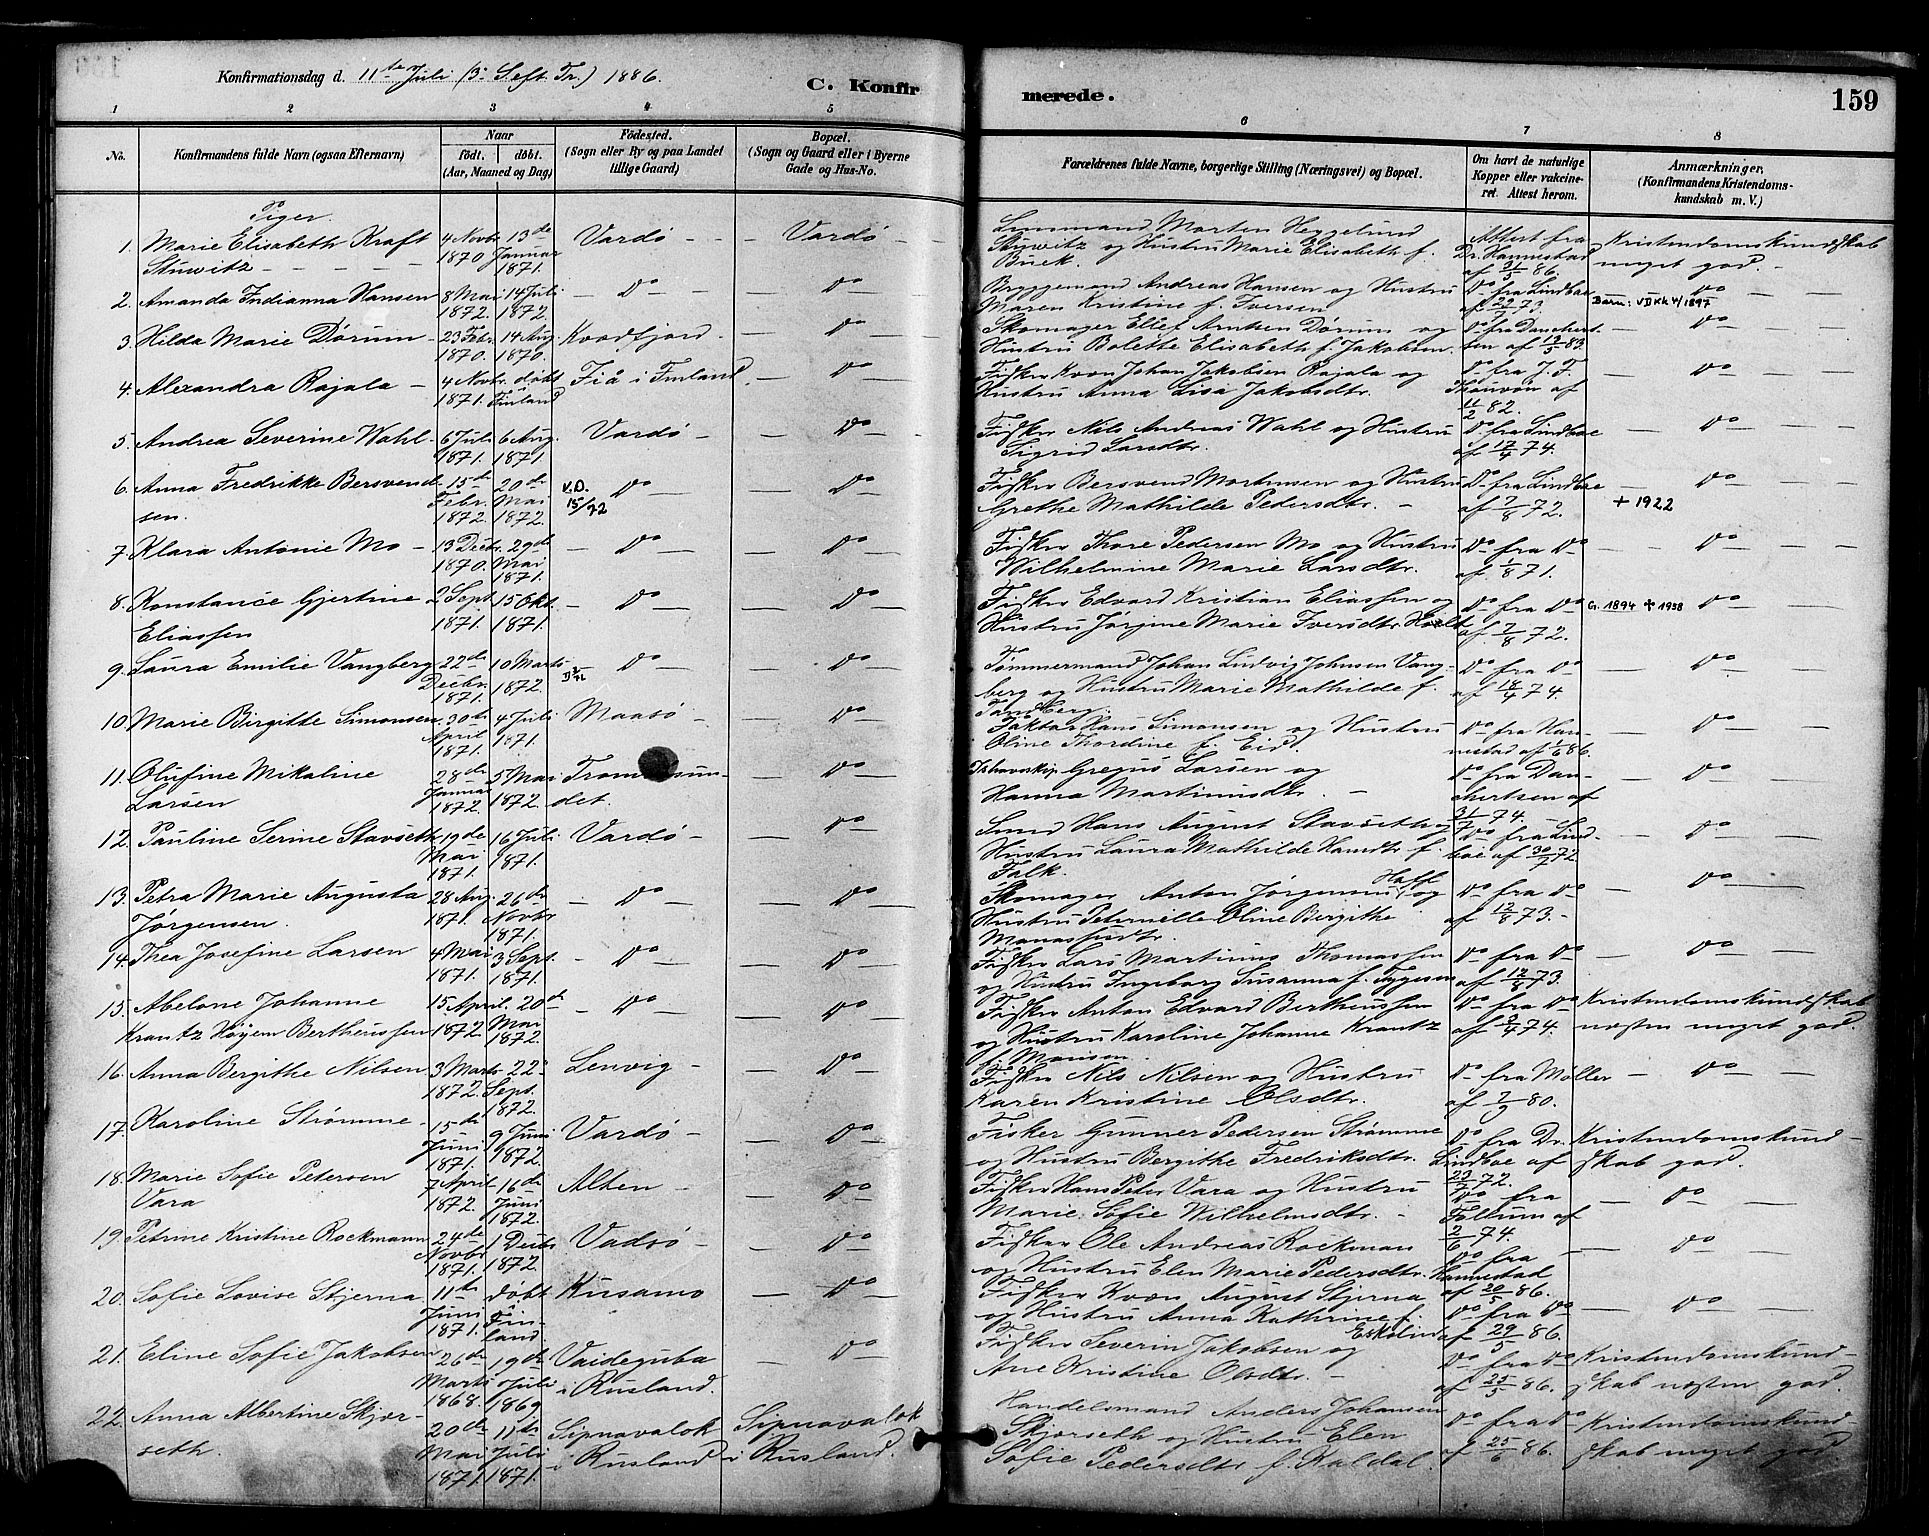 159
Konfirmationsdag d. 11te Juli (3. S. eft. Tr.) 1886.
C. Konfirmerede.
1 2 3 4 5 6 7 8
No.
Konfirmandens fulde Navn (ogsaa Efternavn)
Naar
födt. döbt.
(Aar, Maaned og Dag)
Födested.
(Sogn eller By og paa Landet
tillige Gaard)
Bopæl.
(Sogn og Gaard eller i Byerne
Gade og Hus-No.
Forældrenes fulde Navne, borgerlige Stilling (Næringsvei) og Bopæl.
Om havt de naturlige
Kopper eller vakcine-
ret. Attest herom.
Anmærkninger.
(Konfirmandens Kristendoms-
kundskab m. V.)
Piger
1. Marie Elisabeth Kraft Stuwitz 4 Novbr 1870 13de Januar 1871. Vardö Vardö Lensmand Morten Heggelund Stuwitz og Hustru Marie Elisabeth f. Buck. Attest fra Dr. Hannestad af 31/5 86. Kristendomskundskab meget god.
2. Amanda Indianna Hansen 8 Mai 1872. 14 Juli 1872. Do Do Bryggemand Andreas Hansen og Hustru Maren Kristine f. Iversen Do fra Lindboe af 22/7 73. Do Barn: VDKk 4/1897
3. Hilda Marie Dørum 23 Febr. 1870. 14 Aug. 1870. Kvædfjord Do Skomager Ellef Arntsen Dørum og Hustru Bolette Elisabeth f. Jakobsen. Do fra Danchertsen af 12/5 83. Do
4. Alexandra Rajala 4 Novbr. 1871. döbt i Finland Fiå i Finland Do Fisker Kvæn Johan Jakobsen Rajala og Hustru Anna Lisa Jakobsdtr. Do fra J. F. Thauvon af 11/2 82. Do
5. Andrea Severine Wahl 6 Juli 1871. 6 Aug. 1871 Vardö Do Fisker Nils Andreas Wahl og Hustru Sigrid Larsdtr. Do fra Lindboe af 17/4 74. Do
6. Anna Fredrikke Bersvendsen. 15de Febr. 1872. 20de Mai 1872. V.D. 15/72 Do Do Fisker Bersvend Mortensen og Hustru Grethe Mathilde Pedersdtr. Do fra Lindboe af 7/8 72. Do + 1922
7. Klara Antonie Mo 13 Decbr. 1870. 29de Mai 1871. Do Do Fisker Thore Pedersen Mo og Hustru Wilhelmine Marie Larsdtr. Do fra Do af 1/8 71. Do
8. Konstance Gjertine Eliassen 2 Sept. 1871. 15 Okt. 1871. Do Do Fisker Edvard Kristian Eliassen og Hustru Jørgine Marie Iversdtr. Hoelt Do fra Do af 7/8 72. G. 1894 + 1938 Do
9. Laura Emilie Vangberg 22de Decbr. 1871. 10 Marts 1872. Do Do Tømmermand Johan Ludvig Johnsen Vangberg og Hustru Marie Mathilde f. Tandberg. Do fra Do af 18/4 74. Do
10. Marie Birgitte Simonsen 30te April 1871. 4 Juli 1871. Maasö Do Jnktør Hans Simonsen og Hustru Oline Thordine f. Eid. Do fra Hannestad af 1/6 86. Do
11. Olufine Mikaline Larsen 28de Januar 1872. 5 Mai 1872. Tromsøsundet. Do Gregus Larsen og Hanna Martinusdtr. Do fra Danchertsen af 31/7 74. Do
12. Pauline Serine Stavseth 19de Mai 1871. 16 Juli 1871. Vardö Do Smed Hans August Stavseth og Hustru Laura Mathilde Hansdtr. f. Falk. Do fra Lindboe af 30/7 72 Do
13. Petra Marie Augusta Jørgensen. 28 Aug. 1871. 26de Novbr 1871. Do Do Skomager Anton Jørgensen Haffl og Hustru Peternelle Oline Bergithe Manassesdtr. Do fra Do af 12/8 73. Do
14. Thea Josefine Larsen 4 Mai 1871. 3 Sept. 1871. Do Do Fisker Lars Martinus Thomassen og Hustru Ingeborg Susanna f. Tygesen Do fra Do af 12/8 73. Do
15. Abelone Johanne Krantz Høyem Bertheussen 15 April 1872. 20de Mai 1872. Do Do Fisker Anton Edvard Bertheussen og Hustru Karoline Johanne Krantz f. Monsen. Do fra Do af 9/4 74. Kristendomskundskab næsten meget god.
16. Anna Bergithe Nilsen 3 Marts 1872. 22 Sept. 1872. Lenvig Do Fisker Nils Nilsen og Hustru Karen Kristine Olsdtr. Do fra Møller af 7/9 80. Do
17. Karoline Strømme 15de Juni 1871. 9 Juni 1872. Vardö Do Fisker Gunner Pedersen Strømme og Hustru Bergithe Fredriksdtr. Do fra Dr. Lindboe af 23/7 72. Kristendomskundskab god.
18. Marie Sofie Petersen Vara 7 April 1872. 16de Juni 1872. Alten Do Fisker Hans Peter Vara og Hustru Marie Sofie Wilhelmsdtr. Do fra Follum af 2/6 74. Do
19. Petrine Kristine Rockmann 24de Novbr 1871. 1 Decbr 1872. Vadsö Do Fisker Ole Andreas Rockman og Hustru Elen Marie Pedersdtr. Do fra Hannestad af 20/5 86. Do
20. Sofie Lovise Stjerna 11te Juni 1871. döbt i Finland. Kusamo Do Fisker Kvæn August Stjerna og Hustru Anna Kathrine f. Eskelin Do fra Do af 29/5 86. Do
21. Eline Sofie Jakobsen 26de Marts 1868. 19de Juli 1869 Vaideguba i Rusland. Do Fisker Severin Jakobsen og Ane Kristine Olsdtr. Do fra Do af 25/5 86. Kristendomskundskab næsten god.
22. Anna Albertine Skjærseth. 20de Mai 1871. 11te Juli 1871. Sipnavalok i Rusland Sipnavalok i Rusland. Handelsmand Anders Johansen Skjærseth og Hustru Elen Sofie Pedersdtr f. Kaldal. Do fra Do af 25/6 86. Kristendomskundskab meget god.